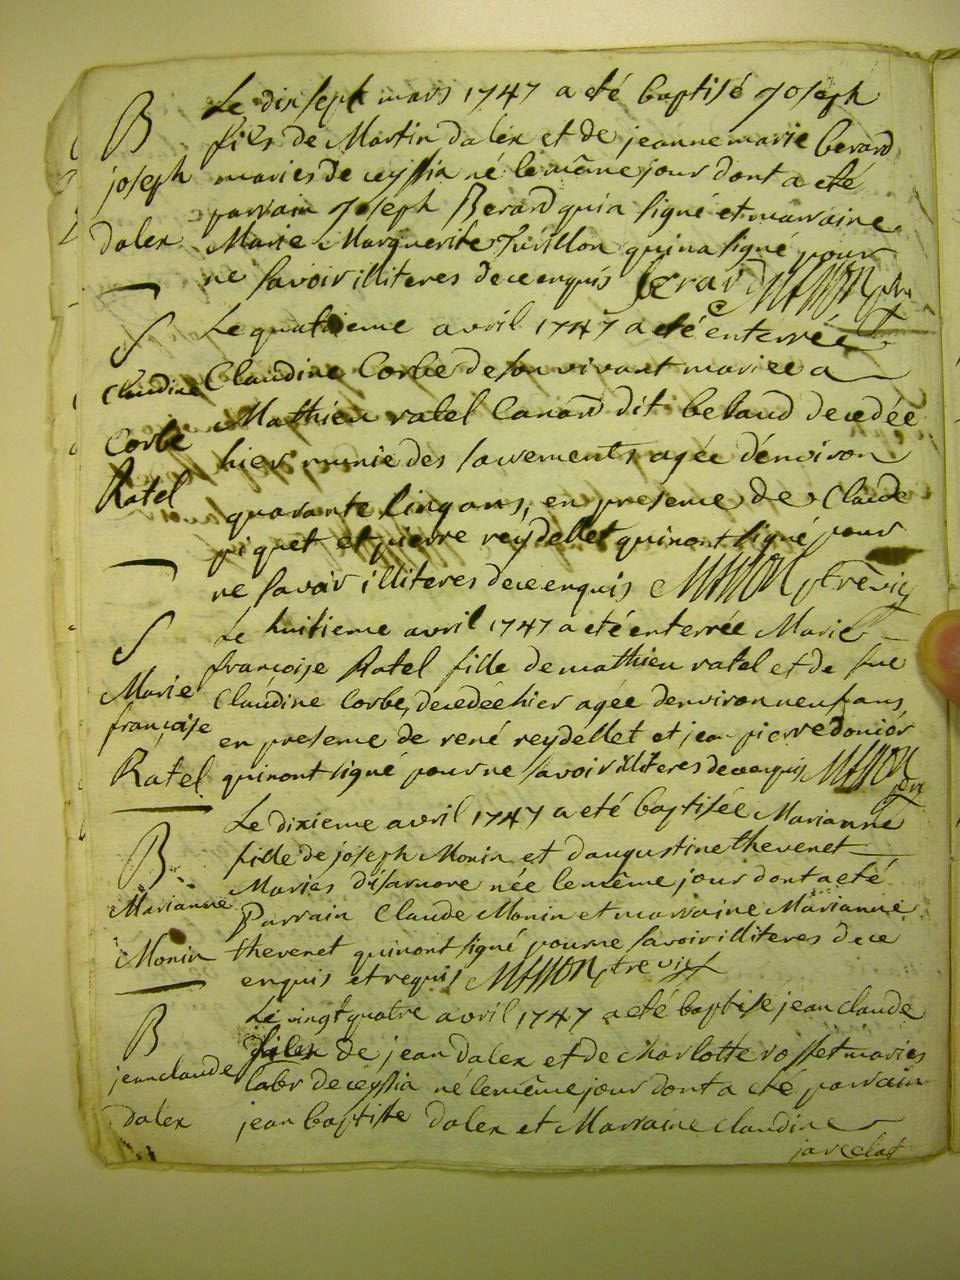 B
joseph
dalex
Le dix sept mars 1747 a eté baptisé joseph
fils de Martin dalex et de jeanne marie berard
mariés de ceyssia né le même jour dont a eté
parrain joseph Berard qui a signé et marraine
Marie Marguerite qui na signé pour
ne savoir illiteres de ce enquis Berard
S
Claudine
Corbe
Ratel
Le quatrieme avril 1747 a eté enterrée
Claudine Corbe de son vivant mariee a
Mathieu ratel Canard dit beland decedée
hier munie des sacrements agée d'environ
quarante cinq ans, en presence de Claude
piquet et pierre reydellet qui nont signé pour
ne savoir illiteres de ce enquis
S
Marie
françoise
Ratel
Le huitieme avril 1747 a eté enterrée Marie
françoise Ratel fille de mathieu ratel et de fue
Claudine Corbe, decedée hier agée denviron neuf ans
en presence de rené reydellet et jean pierre donier
qui nont signé pour ne savoir illiteres de ce enquis
B
Marianne
Monin
Le dixieme avril 1747 a eté baptisée Marianne
fille de joseph Monin et daugustine thevenet
Mariés disarnore née le même jour dont a eté
Parrain Claude Monin et marraine Marianne
thevenet qui nont signé pour ne savoir illiteres de ce
enquis et requis
B
jean claude
dalex
Le vingt quatre avril 1747 a eté baptisé jean claude
de jean dalex et de charlotte rosset mariés
labr de ceyssia né le même jour dont a eté parrain
jean baptiste dalex et Marraine claudine
javelot